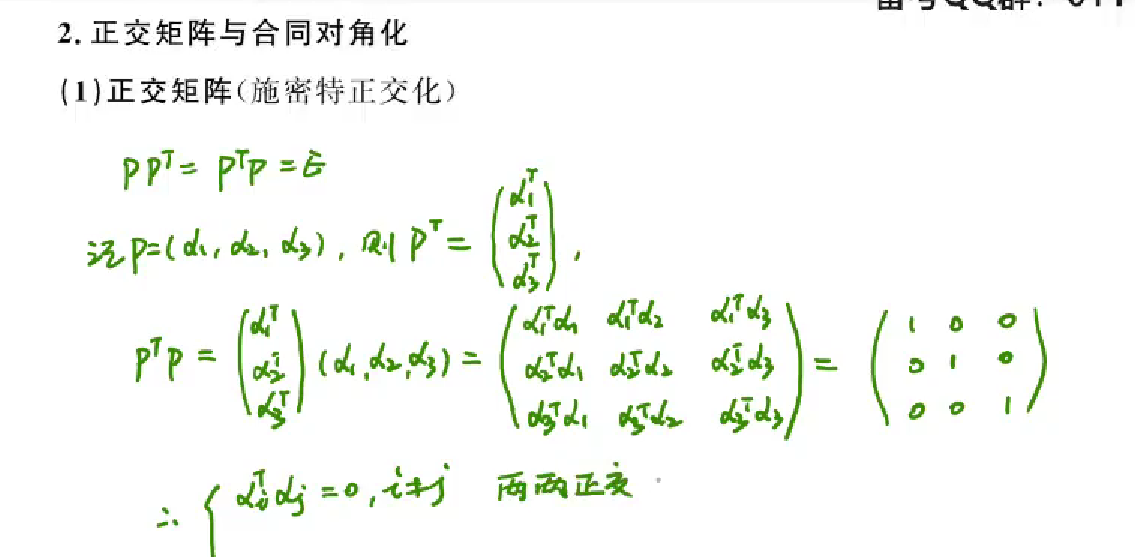 2. 正交矩阵与合同对角化
(1)正交矩阵(施密特正交化)
PPᵀ = PᵀP = E
记P=(α₁, α₂, α₃), 则 Pᵀ = (α₁ᵀ α₂ᵀ α₃ᵀ),
PᵀP = (α₁ᵀ α₂ᵀ α₃ᵀ) (α₁,α₂,α₃) = (α₁ᵀα₁ α₁ᵀα₂ α₁ᵀα₃ α₂ᵀα₁ α₂ᵀα₂ α₂ᵀα₃ α₃ᵀα₁ α₃ᵀα₂ α₃ᵀα₃) = (1 0 0 0 1 0 0 0 1)
∴ { αᵢᵀαⱼ = 0, i≠j 两两正交